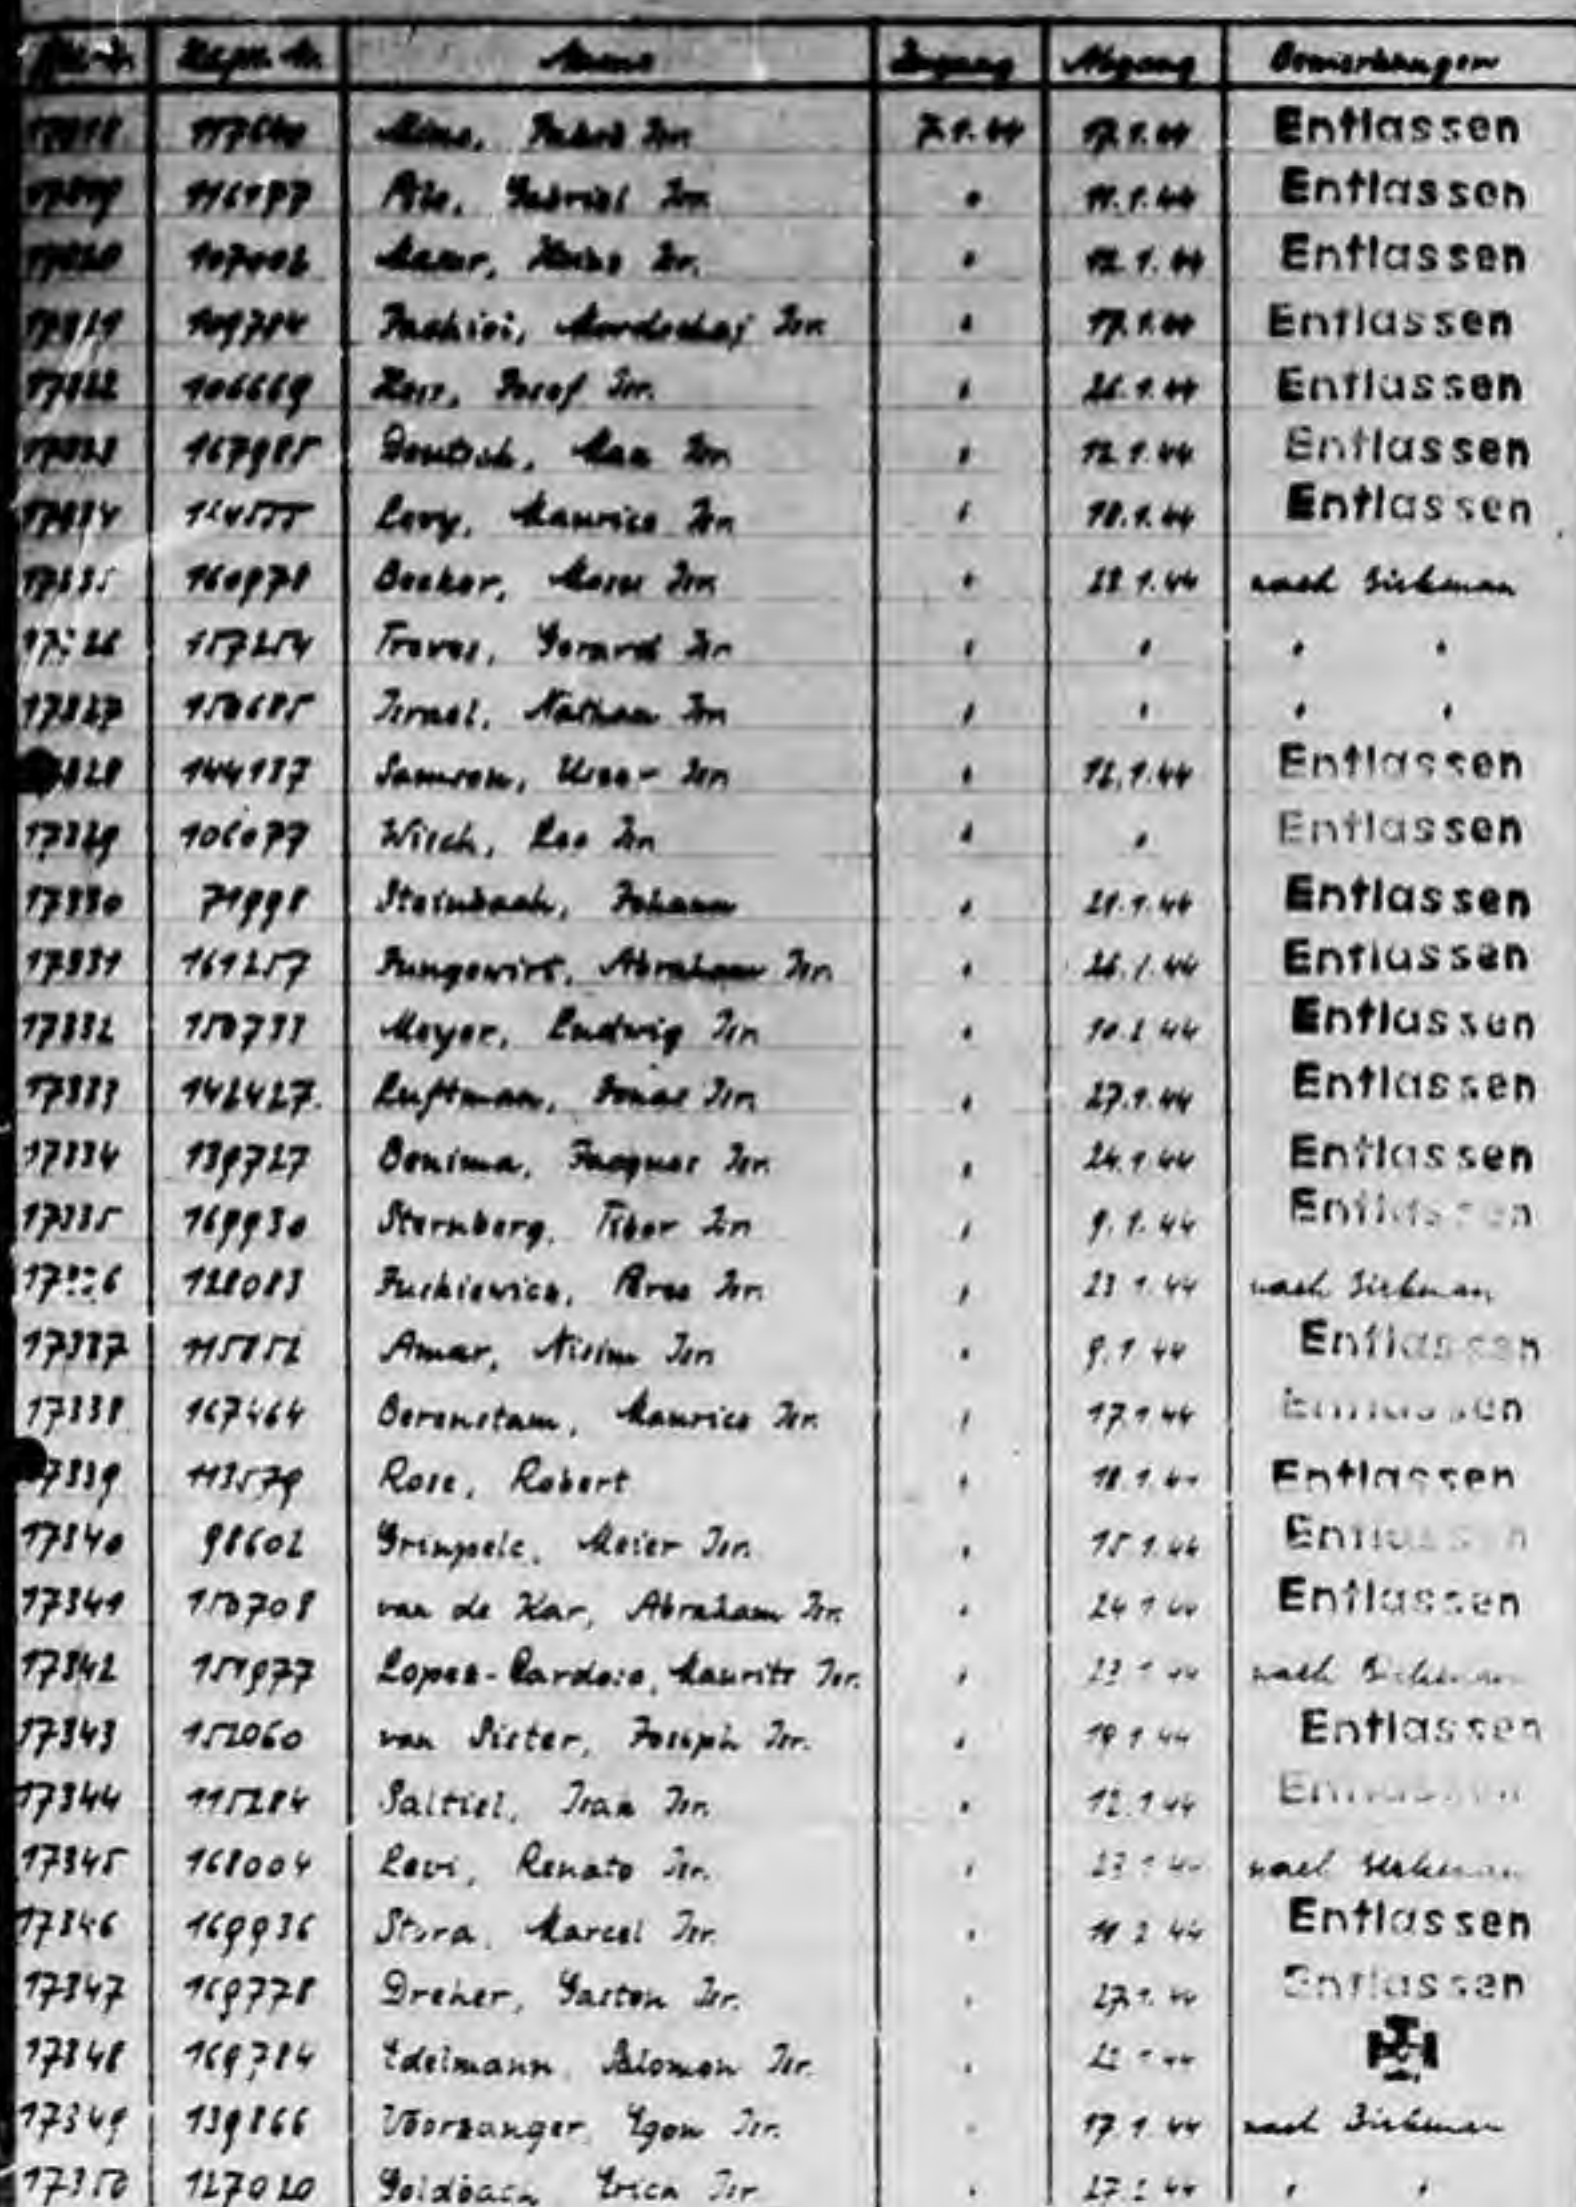 Name Zugang Abgang Bemerkungen
17818 7.1.44 17.1.44 Entlassen
17819 116177 Gabriel Isr. " 11.1.44 Entlassen
17820 Isr. " 12.1.44 Entlassen
17821 109784 Mordochaj Isr. " 17.1.44 Entlassen
17822 106669 Josef Isr. " 26.1.44 Entlassen
17823 167985 Deutsch, Max Isr. " 12.1.44 Entlassen
124555 Levy, Maurice Isr. " 18.1.44 Entlassen
160978 Becker, Isr. " 23.1.44 nach Birkenau
17826 157254 Treves, Gerard Isr. " " " "
17827 150685 Israel, Nathan Isr. " " " "
144187 Samson, Isr. " 16.1.44 Entlassen
17829 106077 Wisch, Leo Isr. " " Entlassen
17330 71998 Steinbach, Johann " 21.1.44 Entlassen
17331 161257 Jungewirt, Abraham Isr. " 26.1.44 Entlassen
17332 150733 Meyer, Ludwig Isr. " 10.2.44 Entlassen
17333 142427 Luftman, Jonas Isr. " 27.1.44 Entlassen
17334 139727 Benima, Jacques Isr. " 24.1.44 Entlassen
17335 169930 Sternberg, Tibor Isr. " 9.1.44 Entlassen
128083 Isr. " 23.1.44 nach Birkenau
17337 115852 Amar, Nissim Isr. " 9.1.44 Entlassen
17338 167464 Berenstam, Maurice Isr. " 17.1.44 Entlassen
17339 113579 Rose, Robert " 18.1.44 Entlassen
17340 98602 Meier Isr. " 15.1.44 Entlassen
17341 150708 van de Kar, Abraham Isr. " 24.1.44 Entlassen
17342 151977 Lopes-Cardozo, Maurits Isr. " 23.1.44 nach Birkenau
17343 152060 Joseph Isr. " 19.1.44 Entlassen
17344 115284 Saltiel, Isr. " 12.1.44 Entlassen
17345 168004 Levi, Renato Isr. " 23.1.44 nach Birkenau
17346 169936 Stora, Marcel Isr. " 11.2.44 Entlassen
17347 169778 Dreher, Gaston Isr. " 27.1.44 Entlassen
17348 169784 Edelmann, Salomon Isr. "
17349 139866 Voorzanger, Egon Isr. " 17.1.44 nach Birkenau
17350 127020 Goldbach, Erich Isr. " " "